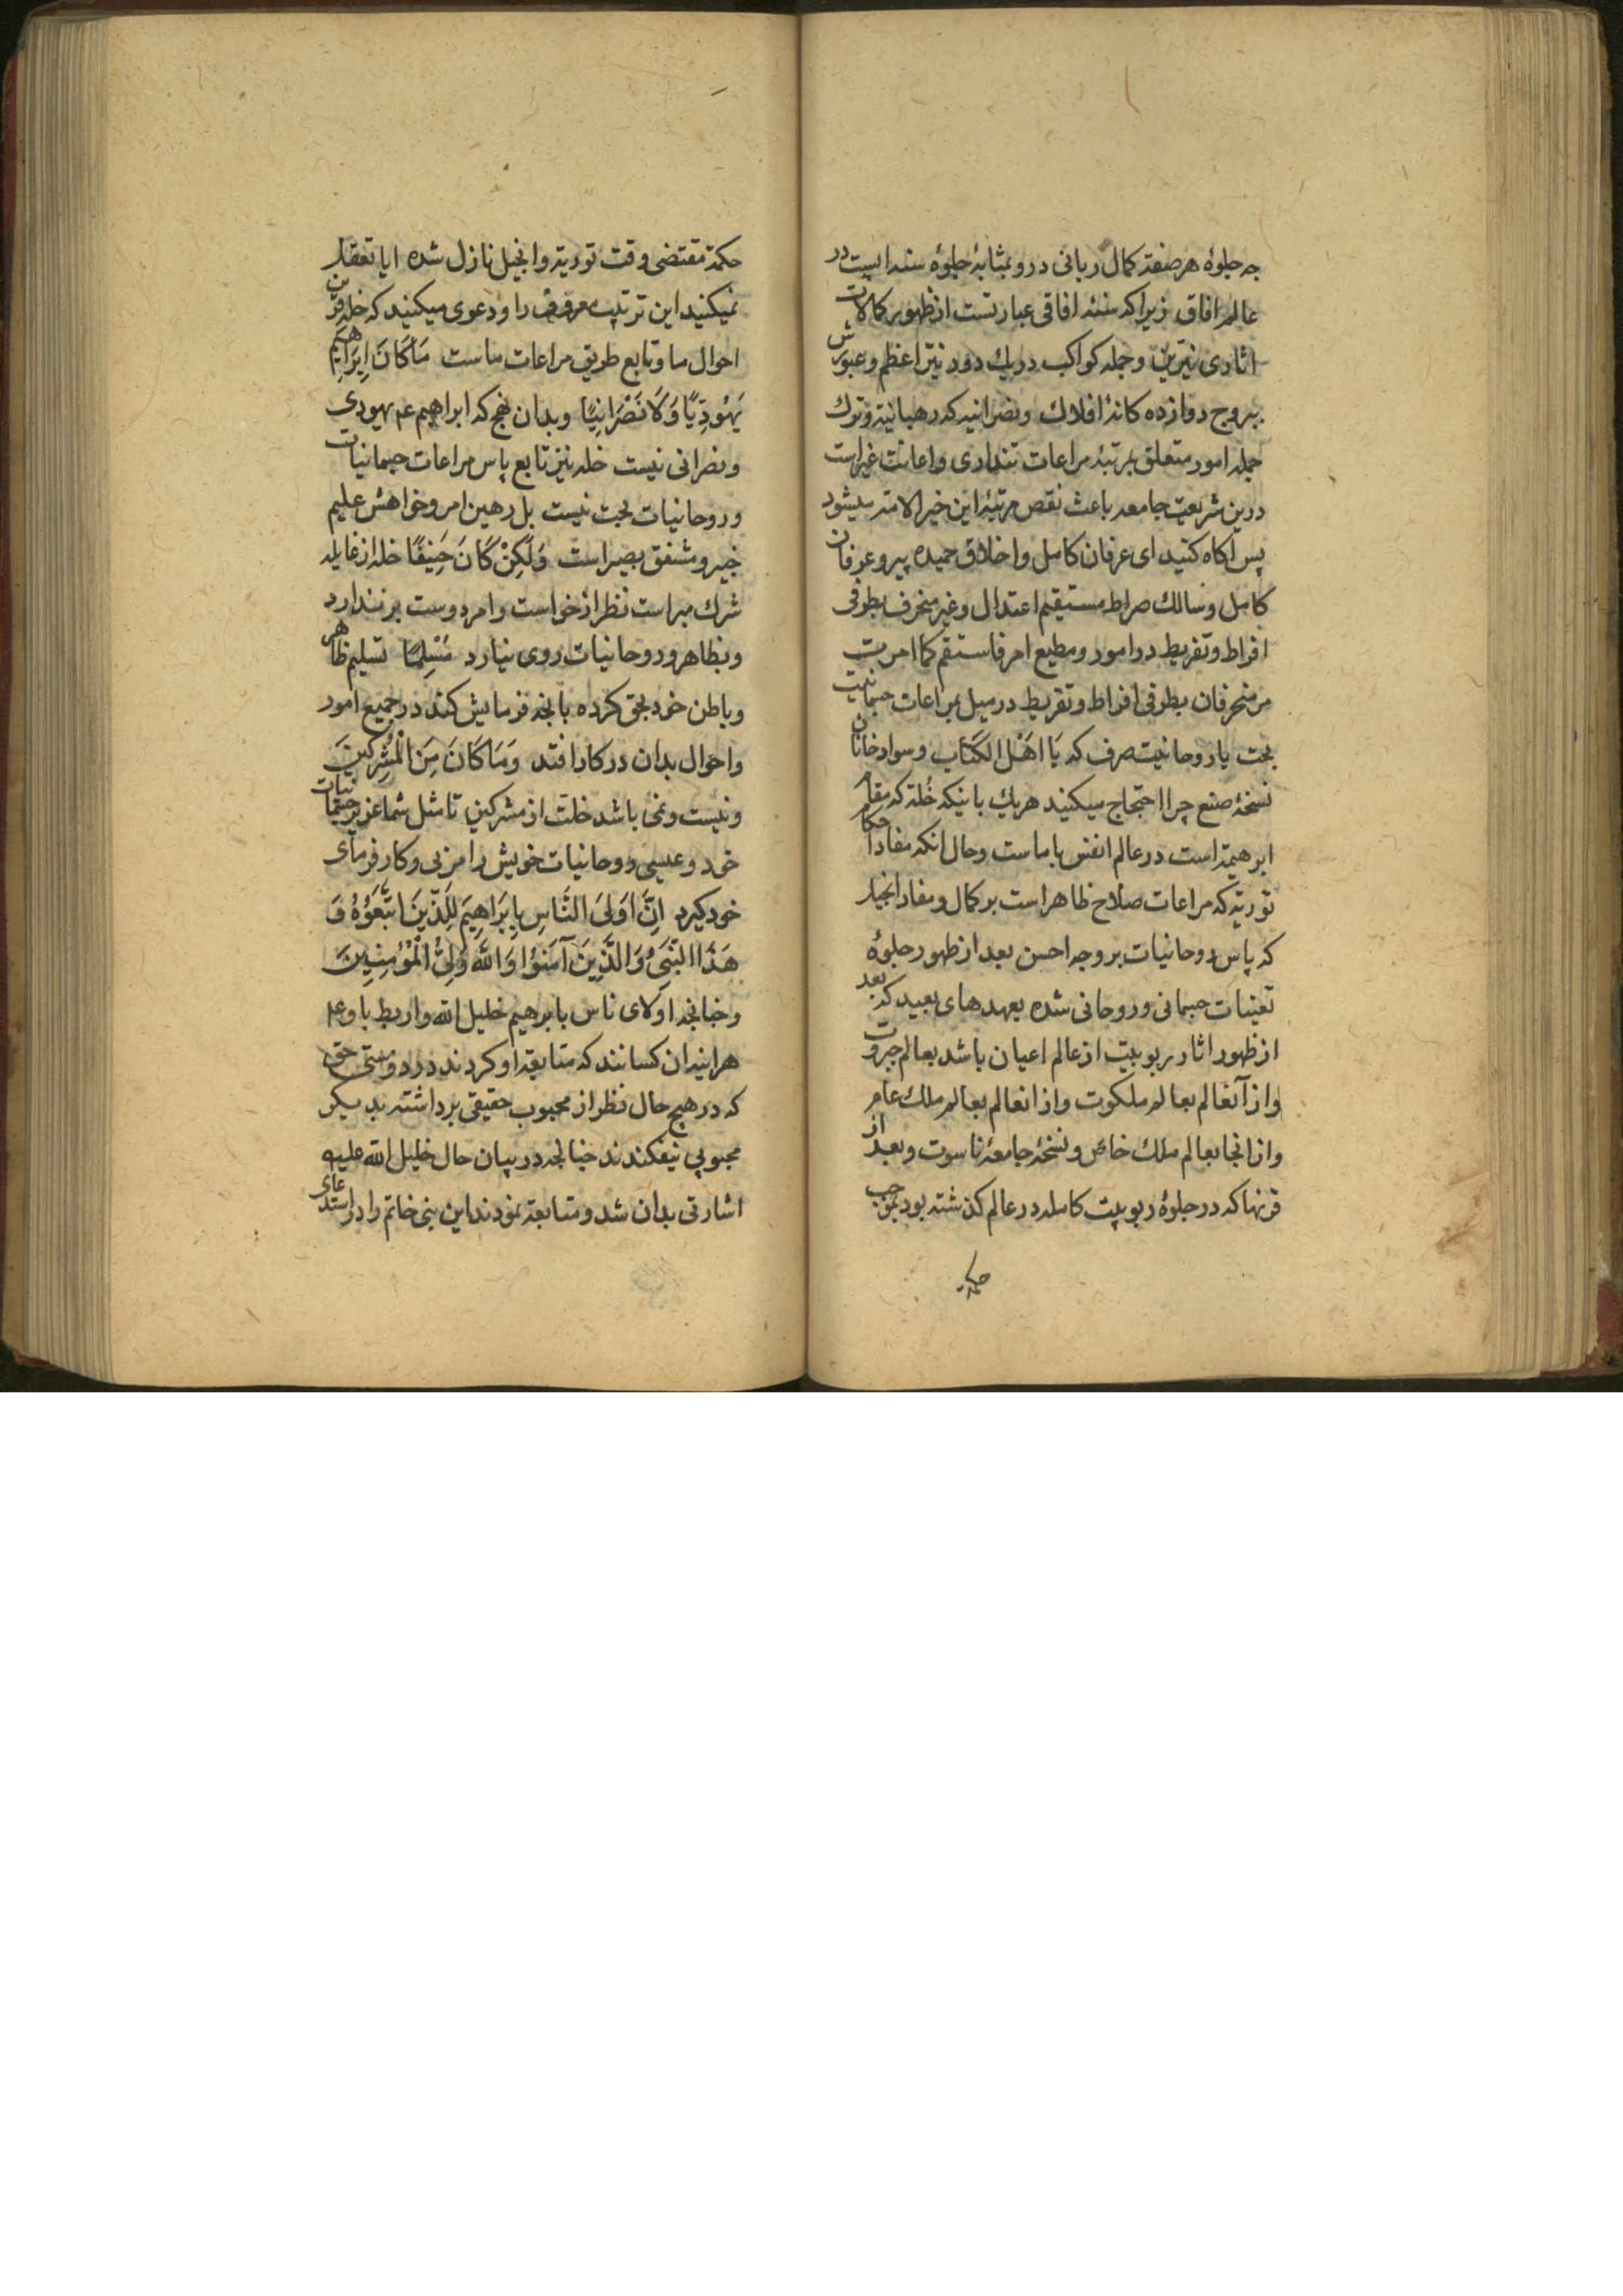 جه جلوهٔ هر صفته کمال ربانی درو بمثابهٔ جلوهٔ سنه ایست در
عالم افاق زیرا که سنهٔ افاقی عبارتست از ظهور کمالات
اثاری نیرین وجمله کواکب در یك دور نیر اعظم وعبورش
ببروج دوازده کانهٔ افلاك ونصرانیه که رهبانیة وترك
جمله امور متعلق بمرتبهٔ مراعات تنداری واعانت غیر است
درین شریعت جامعه باعث نقص مرتبهٔ این خیر الامته میشود
پس آکاه کنید ای عرفان کامل واخلاق حمیده پیرو عرفان
کامل وسالك صراط مستقیم اعتدال وغیر منحرف بطرفی
افراط وتفریط در امور ومطیع امر فاستقم کما امرت
مر منحرفان بطرفی افراط وتفریط در میل بمراعات جسمانیت
بحت یا روحانیت صرف که یَا اَهْلَ الکِتَاب وسواد خانان
نسخهٔ صنع چرا احتجاج میکنید هریك باینکه خُلة که مقام
ابرهیمیة است در عالم انفس با ماست وحال انکه مفاد احکام
توریة که مراعات صلاح ظاهر است بر کمال ومفاد انجیل
که پاس روحانیات بروجه احسن بعد از ظهور جلوهٔ
تعینات جسمانی وروحانی شده بعهدهای بعید که بعد
از ظهور اثار ربوبیت از عالم اعیان باشد بعالم جبروت
واز آنعالم بعالم ملکوت واز انعالم بعالم ملك عام
واز انجا بعالم ملك خاص ونسخهٔ جامعهٔ ناسوت وبعد از
قرنها که در جلوهٔ ربوبیت کامله در عالم کذشته بود بموجب
حکمة
حکمة مقتضی وقت توریة وانجیل نازل شده ایا تعقل
نمیکنید این ترتیب معروف را ودعوی میکنید که خله قرین
احوال ما وتابع طریق مراعات ماست مَا کَانَ اِبرَاهِیمُ
یَهُودِیًّا وَلَا نَصْرَانِیًّا وبدان نهج که ابراهیم عم یهودی
ونصرانی نیست خله نیز تابع پاس مراعات جسمانیات
وروحانیات بحت نیست بل رهین امر وخواهش علیم
خبیر ومشفق بصیر است وَلَکِنْ کَانَ حَنِیفًا خله از غایله
شرك مبراست نظر از خواست وامر دوست بر ندارد
وبظاهر وروحانیات روی نیارد مُسْلِمًا تسلیم ظاهر
وباطن خود بحق کرده بانچه فرمایش کند در جمیع امور
واحوال بدان در کار افتد وَمَا کَانَ مِنَ الْمُشْرِکِینَ
ونیست ونمی باشد خلت از مشرکین تا مثل شما عزیر جسمانیات
خود وعیسی روحانیات خویش را مربی وکار فرمای
خود کیرد اِنَّ اَوْلَیَ النَّاسِ بِاِبْرَاهِیمَ لِلَّذِینَ اتَّبَعُوْهُ وَ
هَذَا النَّبِیُّ وَالَّذِینَ آمَنُوْا وَاللّٰهُ وَلِیُّ الْمُؤْمِنِینَ
وچنانچه اولای ناس بابرهیم خلیل الله واربط با وعم
هراینه ان کسانند که متابعة او کردند درد ومستحق
که در هیچ حال نظر از محبوب حقیقی برداشته بدیکر
محبوبی نیفکندند چنانچه در بیان حال خلیل الله علیه
اشارتی بدان شد ومتابعة نمودند این نبی خاتم را در استدعای